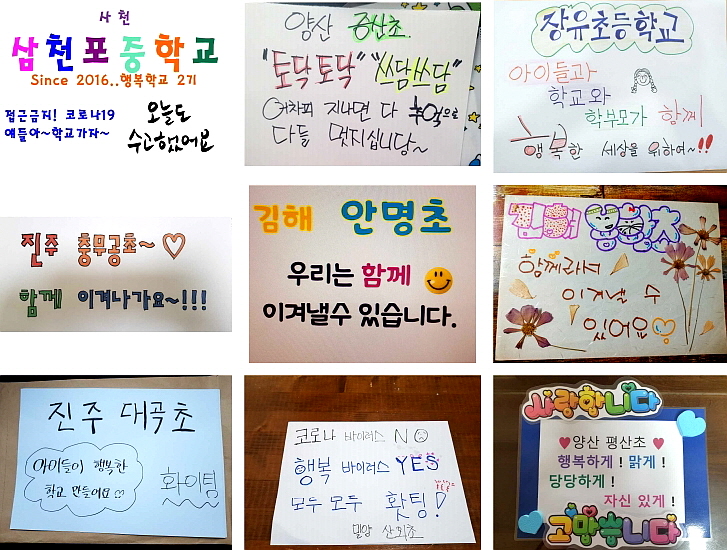 사천
삼천포중학교
Since 2016..행복학교 2기
접근금지! 코로나19
얘들아~학교가자~
오늘도
수고했어요
양산 증산초.
"토닥토닥" "쓰담쓰담"
어차피 지나면 다 추억으로
다들 댓지십니당~
장유초등학교
아이들과
학교와
학부모가 함께
행복한 세상을 위하여~!!
진주 충무공초~♡
함께 이겨나가요~!!!
김해 안명초
우리는 함께
이겨낼수 있습니다.
진해
함께라서
이겨낼 수
있어요♡
진주 대곡초
아이들이 행복한
학교 만들어요♡
화이팅
코로나 바이러스 NO
행복 바이러스 YES
모두 모두 홧팅!
밀양 산외초
사랑합니다
♥양산 평산초♥
행복하게! 맑게!
당당하게!
자신 있게!
고맙습니다